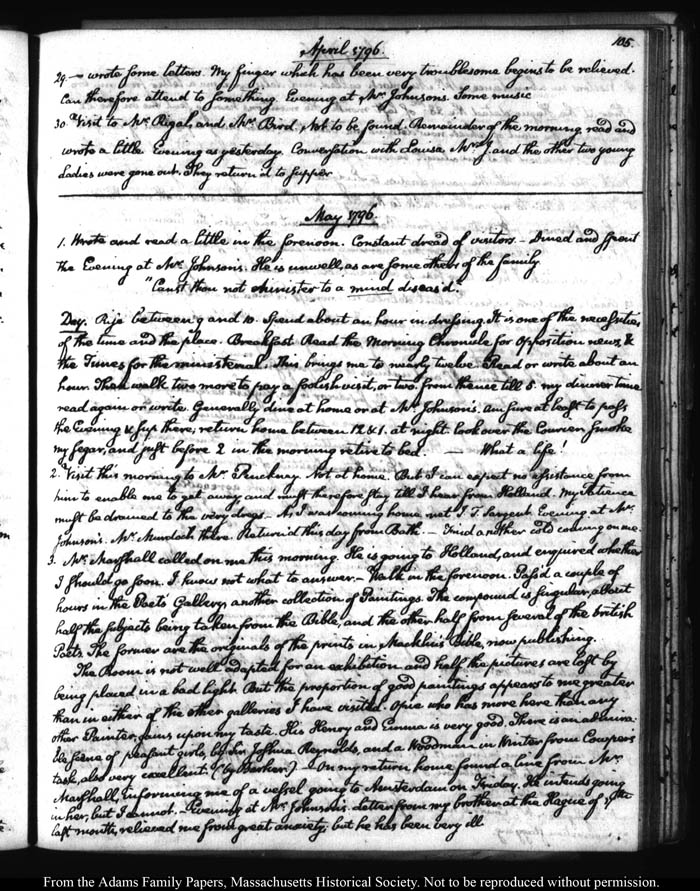 April 1796.
105.
29. — wrote some letters. My finger which has been very troublesome begins to be relieved.
Can therefore attend to something. Evening at Mr Johnsons. Some music
30 Visit to Mr Rigal, and Mr Bird, Not to be found. Remainder of the morning read and
wrote a little Evening as yesterday. Conversation with Louisa. Mrs J. and the other two young
Ladies were gone out. They return'd to supper
May 1796.
1. Wrote and read a little in the forenoon. Constant dread of visitors. — Dined and spent
the Evening at Mr Johnsons. He is unwell, as are some others of the family
"Canst thou not minister to a mind diseas'd."
Day. Rise between 9 and 10. Spend about an hour in dressing. It is one of the necessities
of the time and the place. Breakfast Read the Morning Chronicle for Opposition news, &
the Times for the ministerial. This brings me to nearly twelve. Read or write about an
hour. Then walk two more to pay a foolish visit, or two. from thence till 5. my dinner time
read again or write. Generally dine at home or at Mr Johnson's. Am sure at least to pass
the Evening & sup there, return home between 12 & 1. at night. look over the Courier smoke
my segar, and just before 2 in the morning retire to bed. — What a life!
2. Visit this morning to Mr Pinckney. Not at home. But I can expect no assistance from
him to enable me to get away and must therefore stay till I hear from Holland. My Patience
must be drained to the very dregs. — As I was coming home met J. T. Sargent Evening at Mr
Johnson's. Mr Murdoch there. Return'd this day from Bath. — Find another cold coming on me.
3. Mr Marshall called on me this morning. He is going to Holland, and enquired whether
I should go soon. I know not what to answer. — Walk in the forenoon. Pass'd a couple of
hours in the Poets Gallery, another collection of Paintings. The compound is singular, about
half the subjects being taken from the Bible, and the other half from several of the british
Poets. The former are the originals of the prints in Macklin's Bible, now publishing.
The Room is not well adapted for an exhibition and half the pictures are lost by
being placed in a bad light. But the proportion of good paintings appears to me greater
than in either of the other galleries I have visited. Opie who has more here than any
other Painter, gains upon my taste. His Henry and Emma is very good. There is an admira-
ble scene of peasant girls, by Sir Joshua Reynolds, and a Woodman in Winter from Cowper's
task, also very excellent. (by Barker.) — On my return home found a line from Mr
Marshall, informing me of a vessel going to Amsterdam on Friday. He intends going
in her, but I cannot. — Evening at Mr Johnson's. Letter from my brother at the Hague of
last month, relieved me from great anxiety; but he has been very ill
From the Adams Family Papers, Massachusetts Historical Society. Not to be reproduced without permission.